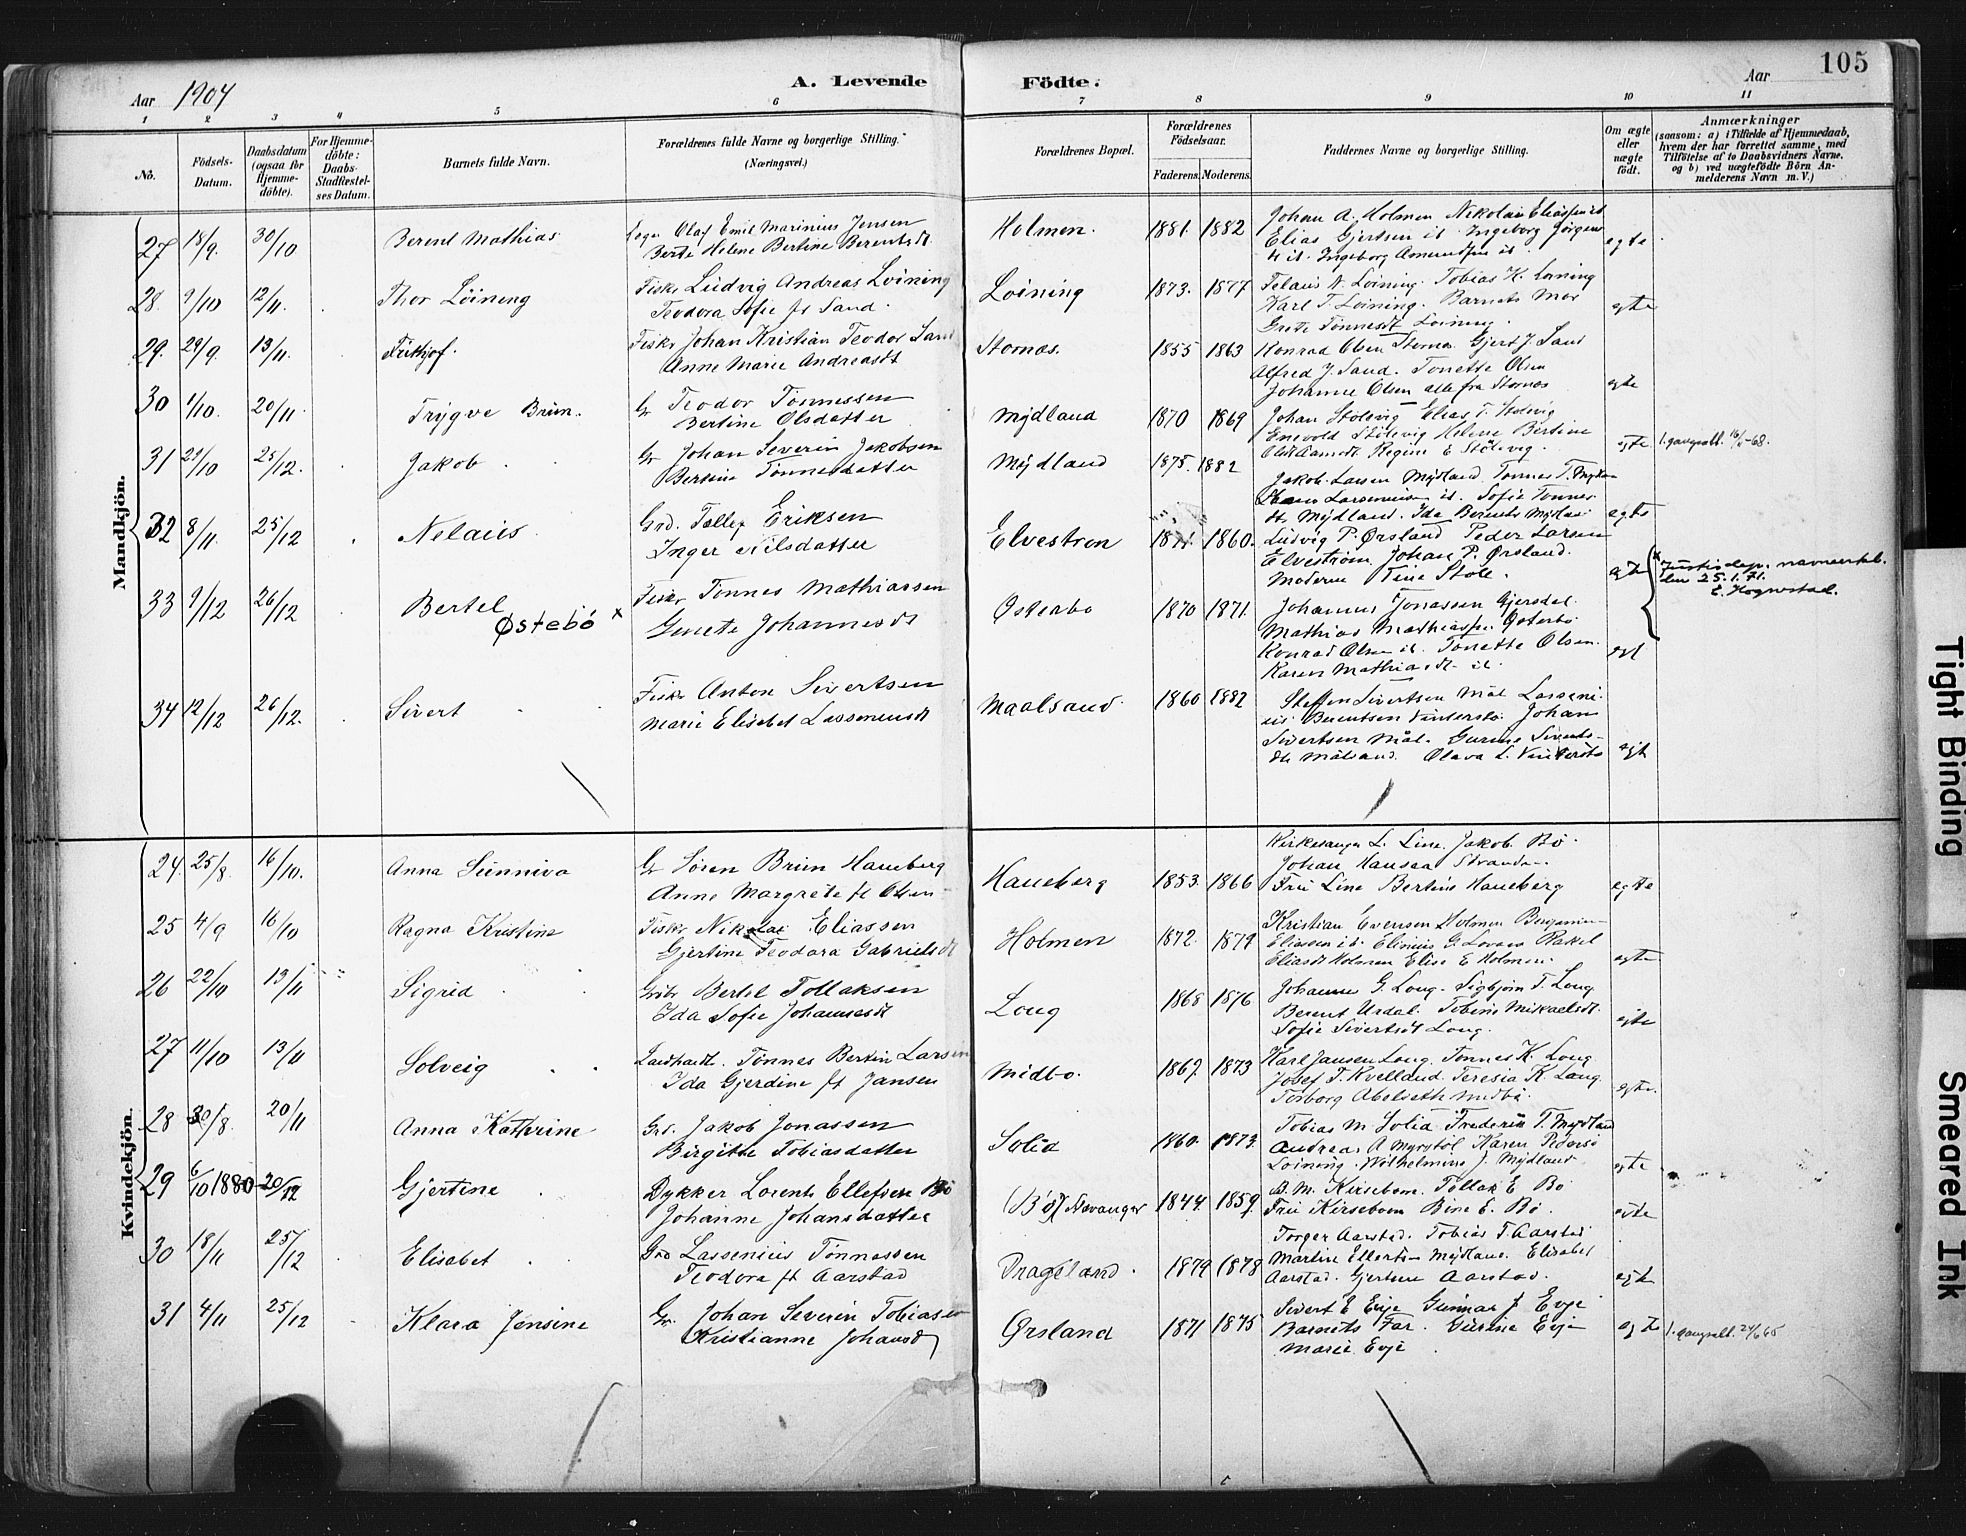 105
Aar 1904
A. Levende Födte.
Aar
1 2 3 4 5 6 7 8 9 10 11
No.
Födsels-Datum.
Daabsdatum (ogsaa for Hjemme-döbte).
For Hjemme-döbte: Daabs-Stadfæstel-ses Datum.
Barnets fulde Navn.
Forældrenes fulde Navne og borgerlige Stilling. (Næringsvei.)
Forældrenes Bopæl.
Forældrenes Födselsaar.
Faderens. Moderens.
Faddernes Navne og borgerlige Stilling.
Om ægte eller uægte födt.
Anmærkninger
(saasom: a) i Tilfælde af Hjemmedaab, hvem der har forrettet samme, med Tilföielse af to Daabsvidners Navne, og b) ved uægtefödte Börn Anmelderens Navn m. V.)
Mandkjön.
27 18/9. 30/10 Berent Mathias
Olaf Emil Marinius Jensen
Berte Helene Bertine Berentsdt
Holmen. 1881. 1882
Johan A. Holmen Nikolai Eliassen
Elias Gjertsen it. Ingeborg Jörgens
egte
28. 9/10 12/11. Thor Löining
Fisker Ludvig Andreas Loining
Teodora Sofie ft Sand.
Loining 1873. 1877
Telaus N. Loining. Tobias K. Loining
Karl T. Loining. Barnets Mor
Grete Tönnesdt Loining.
egte
29. 29/9. 13/11. Frithjof.
Fisker Johan Kristian Teodor Sand
Anne Marie Andreasdt
Stornes. 1855 1863
Konrad Olsen Stornes Gjert J. Sand
Alfred J. Sand. Tonette Olsen
Johanne Olsen alle fra Stornes
egte
30 1/10. 20/11 Trygve Brun.
Gr Teodor Tönnessen
Bertine Olsdatter
Mydland 1870 1869
Johan Stolsvig Elias T.
Enevold Stölsvig Helene Bertine
Regine E Stölsvig.
egte
31 29/10 25/12. Jakob
Gr Johan Severin Jakobsen
Bertine Tönnesdatter
Mydland 1875. 1882
Jakob Larsen Mydland Tonnes T.
Sofie Tonnes
dt. Mydland. Ida Berents Mydland
egte
32 8/11. 25/12 Nelaus
Grd. Tollef Eriksen
Inger Nilsdatter
Elvestron 1860.
Ludvig P. Ørsland Peder Larsen
Elvestrøm Johan P. Ørsland.
Moderen Tine Stole.
33 9/12 26/12 Bertel Østebö x
Fisker Tonnes Mathiassen
Gunete Johannesdt
Osterbo 1870 1871.
Johannes Jonassen Gjersdal.
Mathias Mathiassen Osterbo.
Konrad Olsen it. Tonette Olsen.
Karen Mathiasdt it.
x Justisdep. navneertel.
den 25.1.71.
34 12/12 26/12. Sivert
Fisker Anton Sivertsen
Marie Elisabet Lassensdt
Maalsand. 1860 1882
Steffen Sivertsen Mål Lasseni-
us Berentsen Vinterstö Johan
Sivertsen Mål. Gurine Siverts-
dt Målsand. Olava L. Vinterstö
egt
Kvindekjön.
24. 25/8. 16/10. Anna Sunniva
Gr Sören Brun Haneberg
Anne Margrete ft Olsen
Haneberg 1853. 1866
Kirkesanger L. Line. Jakob Bö.
Fru Line Bertine Haneberg
egte
25 4/9 16/10 Ragna Kristine
Fisker Nikolai Eliassen
Gjertine Teodora Gabrielsdt
Holmen 1872. 1879
Kristian Evensen Holmen
Eliasdt Holmen Elise E Holmen.
egte
26 22/10 13/11 Sigrid
Bertel Tollaksen
Ida Sofie Johannesdt
Long 1868 1876
Johannes G. Long. Sigbjörn T. Long
Berent Urdal. Tobine Mikaelsdt.
Sofie Sivertsdt Long.
egte
27 11/10 13/11 Solveig
Tönnes Bertin Larsen
Ida Gjerdine ft Jansen
Midbo. 1869. 1873
Karl Jansen Long. Tonnes K. Long
Josef T. Kvelland. Teresia K. Long.
Torborg Abelseth Midbö.
egte.
28 30/8. 20/11 Anna Kathrine
Grd. Jakob Jonassen
Birgitte Tobiasdatter
Solid 1860. 1873.
Tobias M. Solid Frederik T. Mydland
Andreas A Myrstöl Karen
Loining. Wilhelmine J. Mydland
egte
29 6/10 1880 20/12 Gjertine
Dykker Lorents Ellefsen Bö
Johanne Johansdatter
(Bö) Stavanger 1844. 1859
B. M. Kirsebom. Tollak E Bö
Fru Kirsebom Bine E. Bö.
egte
30 18/11 25/12 Elisabet
Grd Lassenius Tönnessen
Teodora ft Aarstad
Drageland. 1879 1878
Torger Aarstad. Tobias T. Aarstad
Martin Ellertsen Mydland. Elisabet
Aarstad. Gjertine Aarstad.
31 4/11 25/12 Klara Jensine
Gr. Johan Severin Tobiasen
Kristianne Johansdt
Ørsland 1871 1875
Sivert E Evje Gunnar J Evje
Barnets Far. Gurine Evje
Marie Evje
egte
Tight Binding
Smeared Ink